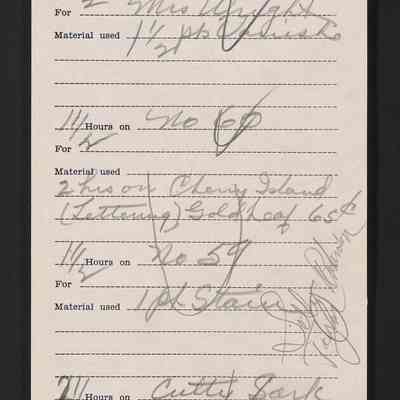 For Mrs Wright
Material used 1 1/2 pt Varnish
1 1/2 Hours on No 60
For
Material used
2 hrs on Cherry Island
(Lettering) Gold Leaf 65¢
1 1/2 Hours on No 59
For
Material used 1 pt Stain
2 1/2 Hours on Cutty Sark